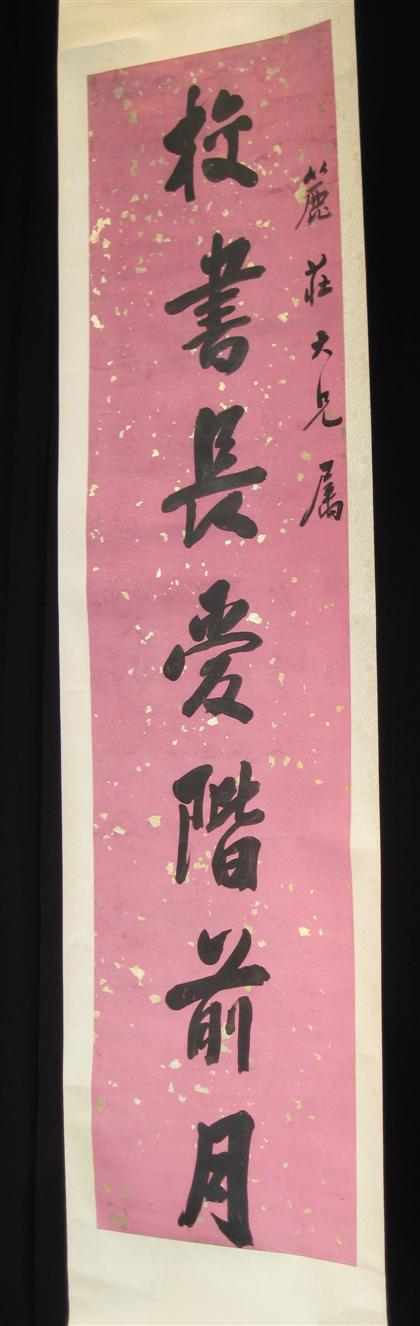 麓莊大兄属
校書長愛階前月